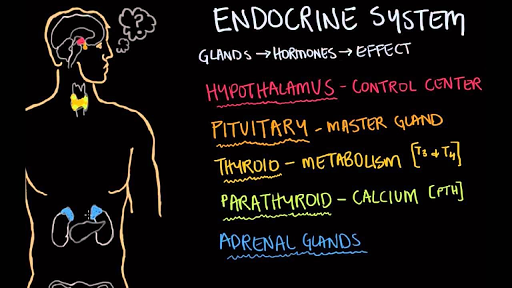 ?
ENDOCRINE SYSTEM
GLANDS → HORMONES → EFFECT
HYPOTHALAMUS - CONTROL CENTER
PITUITARY - MASTER GLAND
THYROID - METABOLISM [T3 & T4]
PARATHYROID - CALCIUM [PTH]
ADRENAL GLANDS